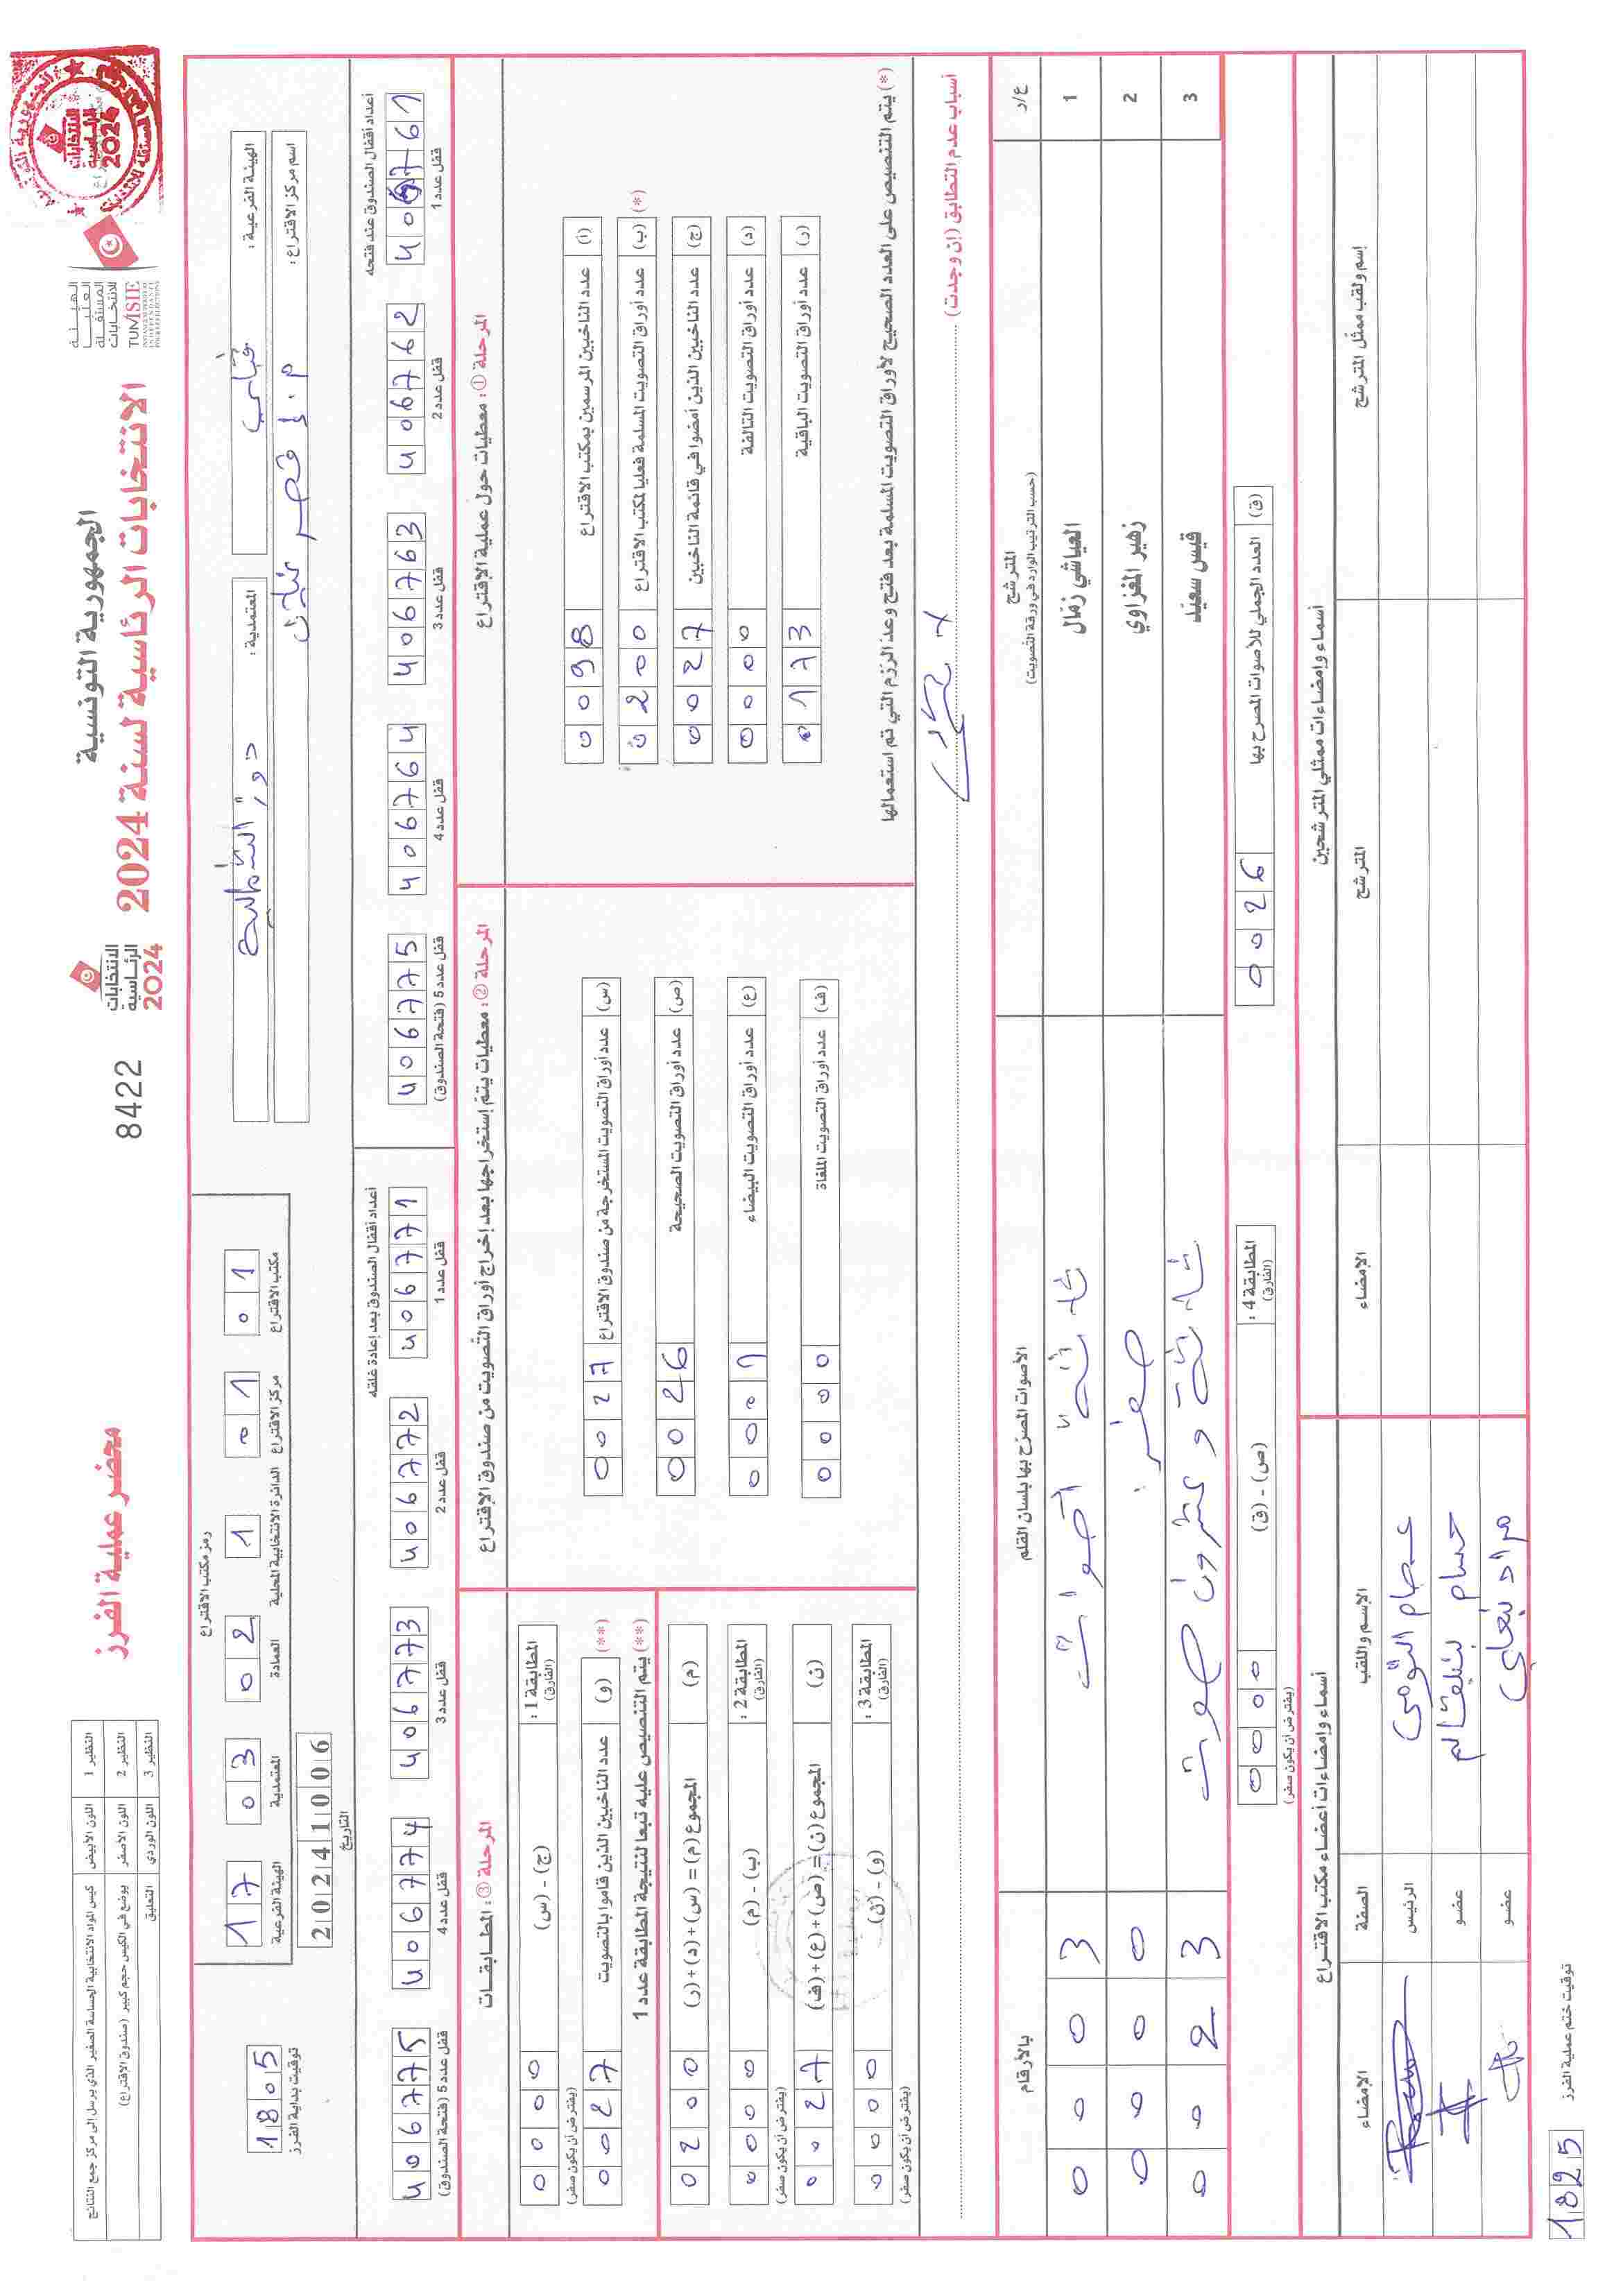 الجمهورية التونسية
الانتخابات الرئاسية لسنة 2024
الهيئة
العليا
المستقلة
للانتخابات
TUNISIE
الانتخابات
الرئاسية
2024
8422
محضر عملية الفرز
النظير 1 اللون الأبيض كيس المواد الانتخابية الحساسة الصغير الذي يرسل إلى مركز جمع النتائج
النظير 2 اللون الأصفر يوضع في الكيس حجم كبير (صندوق الاقتراع)
النظير 3 اللون الوردي التعليق
الهيئة الفرعية :
المعتمدية :
اسم مركز الاقتراع :
رمز مكتب الاقتراع
مكتب الاقتراع 01
مركز الاقتراع 01
الدائرة الانتخابية المحلية 1
العمادة 02
المعتمدية 03
الهيئة الفرعية 17
التاريخ 20241006
توقيت بداية الفرز 1805
أعداد أقفال الصندوق عند فتحه
406762 قفل عدد 2
406763 قفل عدد 3
406764 قفل عدد 4
406775 قفل عدد 5 (فتحة الصندوق)
أعداد أقفال الصندوق بعد إعادة غلقه
406771 قفل عدد 1
406772 قفل عدد 2
406773 قفل عدد 3
406774 قفل عدد 4
406775 قفل عدد 5 (فتحة الصندوق)
المرحلة ① : معطيات حول عملية الاقتراع
(أ) عدد الناخبين المرسمين بمكتب الاقتراع 0098
(ب) عدد أوراق التصويت المسلمة فعليا لمكتب الاقتراع 0200 (*)
(ج) عدد الناخبين الذين أمضوا في قائمة الناخبين 0027
(د) عدد أوراق التصويت التالفة 0000
(ر) عدد أوراق التصويت الباقية 0173
(*) يتم التنصيص على العدد الصحيح لأوراق التصويت المسلمة بعد فتح وعد الرزم التي تم استعمالها
المرحلة ② : معطيات يتم إستخراجها بعد إخراج أوراق التصويت من صندوق الاقتراع
(س) عدد أوراق التصويت المستخرجة من صندوق الاقتراع 0027
(ص) عدد أوراق التصويت الصحيحة 0026
(ع) عدد أوراق التصويت البيضاء 0001
(ف) عدد أوراق التصويت الملغاة 0000
المرحلة ③ : المطابقات
المطابقة 1 : (الفارق) (ج) - (س) 0000
(يفترض أن يكون صفر)
(**) (و) عدد الناخبين الذين قاموا بالتصويت 0027
(**) يتم التنصيص عليه تبعا لنتيجة المطابقة عدد 1
(م) المجموع (م) = (س) + (د) + (ر) 0200
المطابقة 2 : (الفارق) (ب) - (م) 0000
(يفترض أن يكون صفر)
(ن) المجموع (ن) = (ص) + (ع) + (ف) 0027
المطابقة 3 : (الفارق) (و) - (ن) 0000
(يفترض أن يكون صفر)
أسباب عدم التطابق (إن وجدت)
ع/ر المترشح (حسب الترتيب الوارد في ورقة التصويت) الأصوات المصرّح بها بلسان القلم بالأرقام
1 العياشي زمّال ثلاثة أصوات 0003
2 زهير المغزاوي صفر 0000
3 قيس سعيّد ثلاثة وعشرون صوت 0023
(ق) العدد الجملي للأصوات المصرح بها 0026
المطابقة 4 : (الفارق) (ص) - (ق) 0000
(يفترض أن يكون صفر)
أسماء وإمضاءات ممثلي المترشحين
إسم ولقب ممثل المترشح المترشح الإمضاء
أسماء وإمضاءات أعضاء مكتب الاقتراع
الإسم واللقب الصفة الإمضاء
الرئيس
حسام عضو
مراد عضو
توقيت ختم عملية الفرز 1825